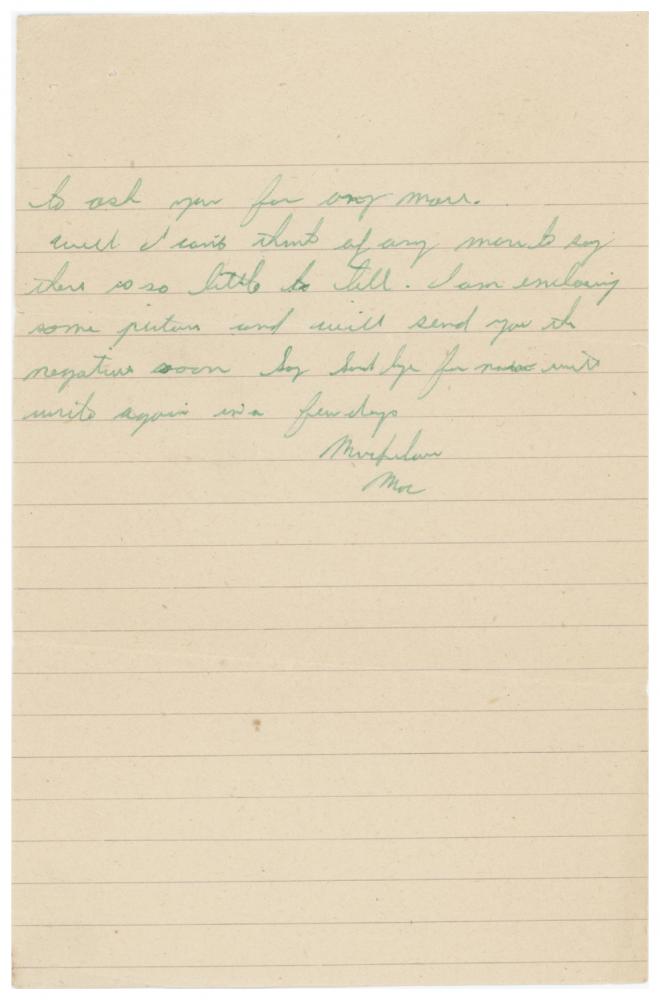 to ask you for any more.
well I can't think of any more to say
there is so little to tell. I am enclosing
some pictures and will send you the
negatives soon Say Good bye for now will
write again in a few days
Much love
Mac